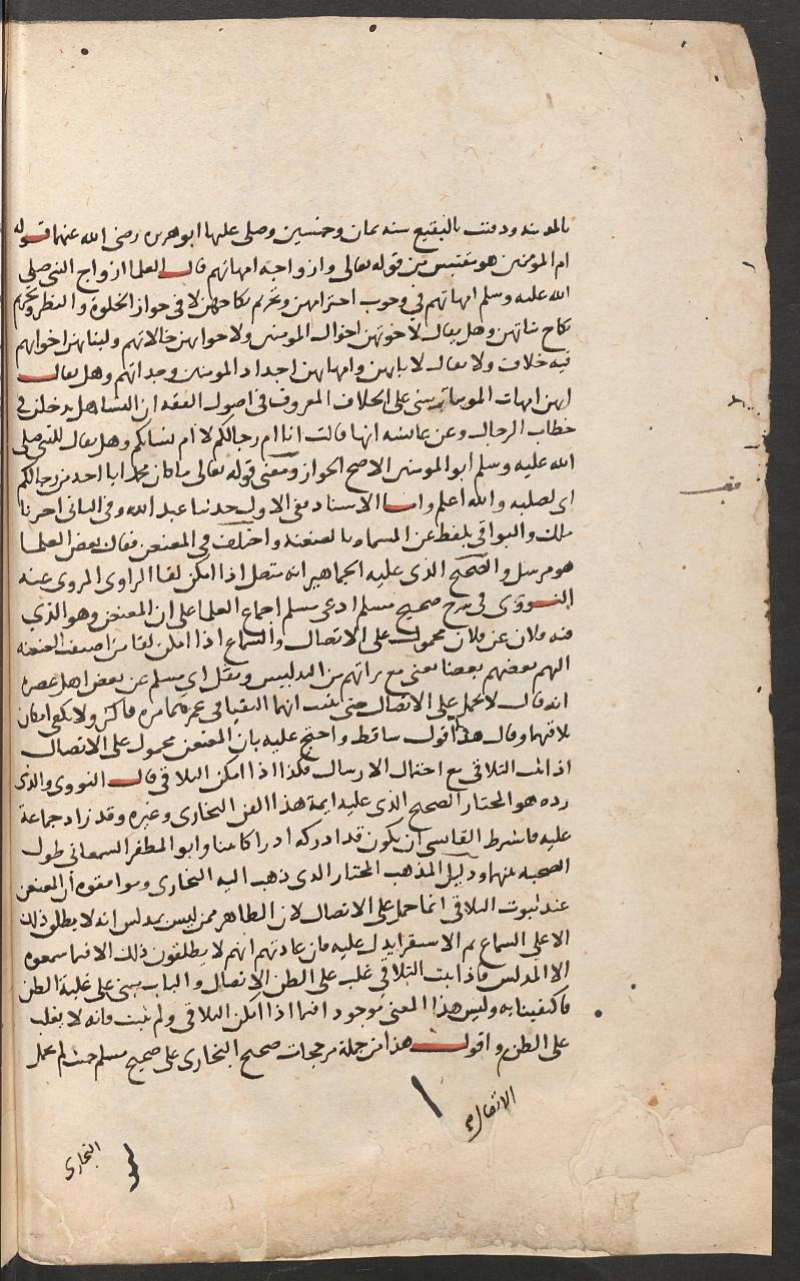 بالمدينه ودفنت بالبقيع سنه ثمان وخمسين وصلى عليها ابو هريره رضى الله عنهما قوله
ام المومنين هو مقتبس من قوله تعالى وازواجه امهاتهم قال العلما ازواج النبى صلى
الله عليه وسلم امهاتهم فى وجوب احترامهن وتحريم نكاحهن لا فى جواز الخلوة والنظر وتحريم
نكاح بناتهن وهل يقال لاخوتهن اخوال المومنين ولاخواتهن خالاتهم ولبناتهن اخواتهم
فيه خلاف ولا يقال لابايهن وامهاتهن اجداد المومنين وجداتهم وهل يقال
انهن امهات المومنات ينبنى على الخلاف المعروف فى اصول الفقه ان النسا هل يدخلن فى
خطاب الرجال وعن عائشه انها قالت انا ام رجالكم لا ام نسايكم وهل يقال للنبى صلى
الله عليه وسلم ابو المومنين الاصح الجواز ومعنى قوله تعالى ما كان محمد ابا احد من رجالكم
اى لصلبه والله اعلم واما الاسناد ففى الاول حدثنا عبد الله وفى الثانى اخبرنا
ملك والبواقى بلفظ عن المسماه بالعنعنه واختلف فى المعنعن فقال بعض العلما
هو مرسل والصحيح الذى عليه الجماهير انه متصل اذا امكن لقا الراوى المروى عنه
النووى فى شرح صحيح مسلم ادعى مسلم اجماع العلما على ان المعنعن وهو الذي
فيه فلان عن فلان محمول على الاتصال والسماع اذا امكن لقا من اضيفت العنعنه
اليهم بعضهم بعضا يعنى مع براتهم من التدليس ونقل اى مسلم عن بعض اهل عصره
انه قال لا يحمل على الاتصال حتى يثبت انهما التقيا فى عمرهما مره فاكثر ولا يكفى امكان
تلاقيهما وقال هذا قول ساقط واحتج عليه بان المعنعن محمول على الاتصال
اذا ثبت التلاقى مع احتمال الارسال فكذا اذا امكن التلاقى قال النووى والذى
رده هو المختار الصحيح الذى عليه ايمة هذا الفن البخارى وغيره وقد زاد جماعة
عليه فاشترط القابسى ان يكون قد ادركه ادراكا بينا وابو المظفر السمعانى طول
الصحبه بينهما ودليل المذهب المختار الذى ذهب اليه البخارى وموافقوه ان المعنعن
عند ثبوت التلاقى انما حمل على الاتصال لان الظاهر ممن ليس بمدلس انه لا يطلق ذلك
الا على السماع ثم الاستقرا يدل عليه فان عادتهم انهم لا يطلقون ذلك الا فيما سمعوه
الا المدلس فاذا ثبت التلاقى غلب على الظن الاتصال والباب مبنى على غلبة الظن
فاكتفينا به وليس هذا المعنى موجود افيما اذا امكن التلاقى ولم يثبت فانه لا يغلب
على الظن واقول هذا من جملة مرجحات صحيح البخارى على صحيح مسلم حيث لم يحمل
البخارى